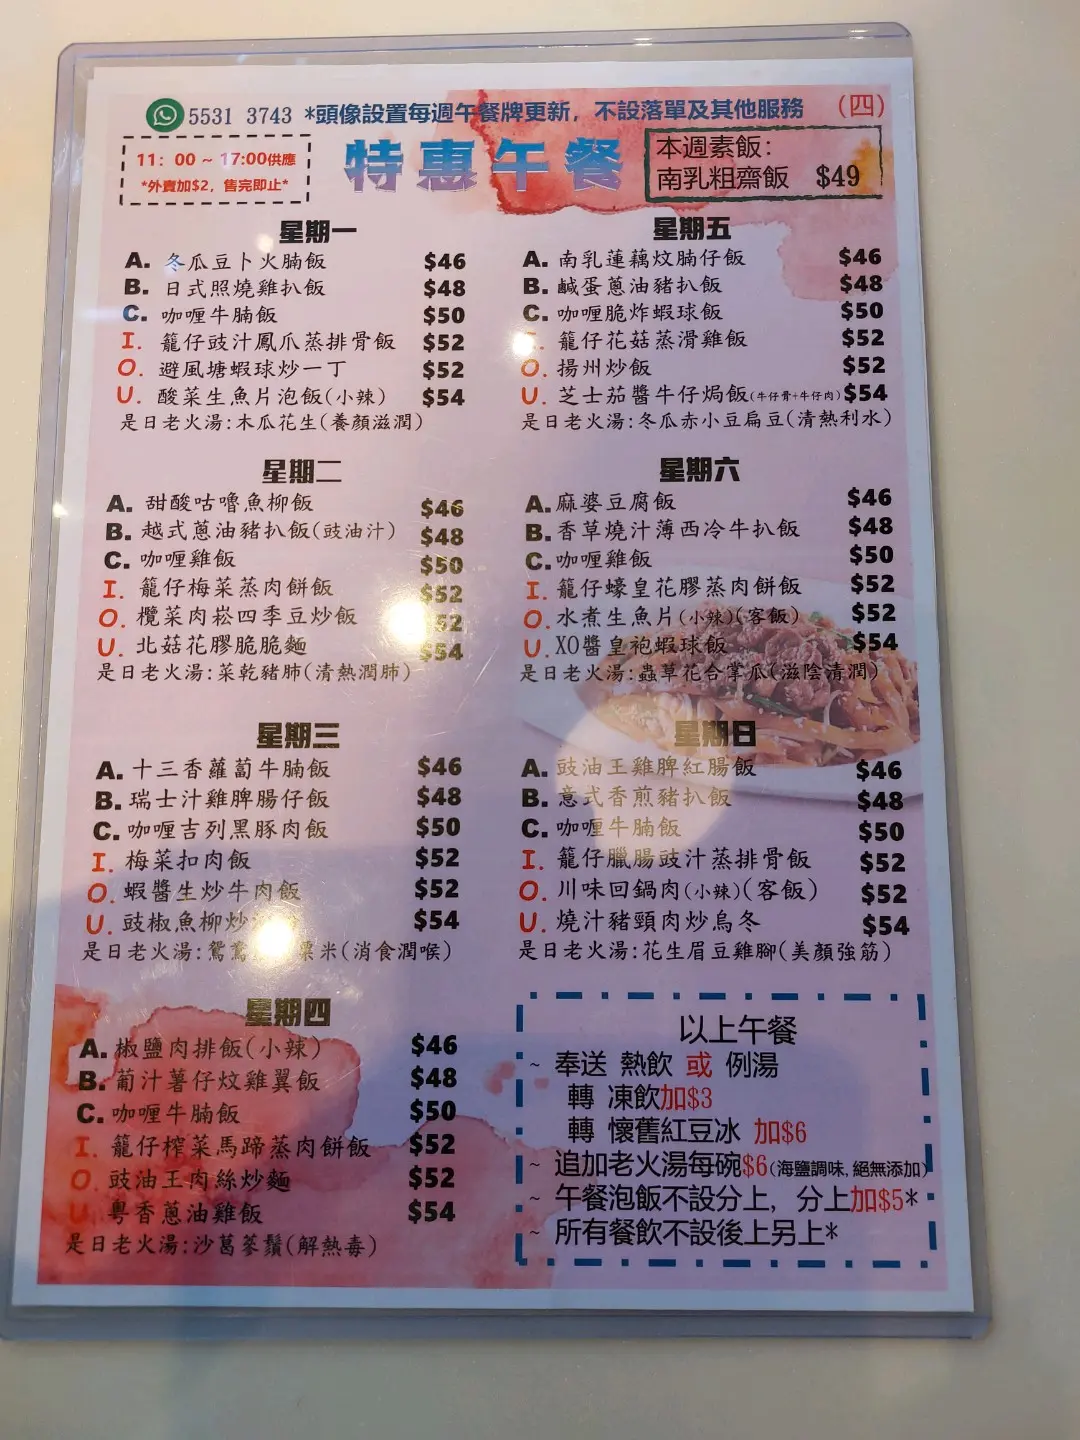 5531 3743 *頭像設置每週午餐牌更新，不設落單及其他服務
(四)
11：00 ~ 17:00供應
*外賣加$2，售完即止*
特惠午餐
本週素飯：
南乳粗齋飯 $49
星期一
A. 冬瓜豆卜火腩飯 $46
B. 日式照燒雞扒飯 $48
C. 咖喱牛腩飯 $50
I. 籠仔豉汁鳳爪蒸排骨飯 $52
O. 避風塘蝦球炒一丁 $52
U. 酸菜生魚片泡飯(小辣) $54
是日老火湯:木瓜花生(養顏滋潤)
星期二
A. 甜酸咕嚕魚柳飯 $46
B. 越式蔥油豬扒飯(豉油汁) $48
C. 咖喱雞飯 $50
I. 籠仔梅菜蒸肉餅飯 $52
O. 欖菜肉崧四季豆炒飯 $52
U. 北菇花膠脆脆麵 $54
是日老火湯:菜乾豬肺(清熱潤肺)
星期三
A. 十三香蘿蔔牛腩飯 $46
B. 瑞士汁雞脾腸仔飯 $48
C. 咖喱吉列黑豚肉飯 $50
I. 梅菜扣肉飯 $52
O. 蝦醬生炒牛肉飯 $52
U. 豉椒魚柳炒 $54
是日老火湯:鴛鴦 粟米(消食潤喉)
星期四
A. 椒鹽肉排飯(小辣) $46
B. 葡汁薯仔炆雞翼飯 $48
C. 咖喱牛腩飯 $50
I. 籠仔榨菜馬蹄蒸肉餅飯 $52
O. 豉油王肉絲炒麵 $52
U. 粵香蔥油雞飯 $54
是日老火湯:沙葛蔘鬚(解熱毒)
星期五
A. 南乳蓮藕炆腩仔飯 $46
B. 鹹蛋蔥油豬扒飯 $48
C. 咖喱脆炸蝦球飯 $50
籠仔花菇蒸滑雞飯 $52
O. 揚州炒飯 $52
U. 芝士茄醬牛仔焗飯(牛仔骨+牛仔肉) $54
是日老火湯:冬瓜赤小豆扁豆(清熱利水)
星期六
A. 麻婆豆腐飯 $46
B. 香草燒汁薄西冷牛扒飯 $48
C. 咖喱雞飯 $50
I. 籠仔蠔皇花膠蒸肉餅飯 $52
O. 水煮生魚片(小辣)(客飯) $52
U. XO醬皇袍蝦球飯 $54
是日老火湯:蟲草花合掌瓜(滋陰清潤)
星期日
A. 豉油王雞脾紅腸飯 $46
B. 意式香煎豬扒飯 $48
C. 咖喱牛腩飯 $50
I. 籠仔臘腸豉汁蒸排骨飯 $52
O. 川味回鍋肉(小辣)(客飯) $52
U. 燒汁豬頸肉炒烏冬 $54
是日老火湯:花生眉豆雞腳(美顏強筋)
以上午餐
~ 奉送 熱飲 或 例湯
轉 凍飲加$3
轉 懷舊紅豆冰 加$6
~ 追加老火湯每碗$6(海鹽調味,絕無添加)
~ 午餐泡飯不設分上，分上加$5*
~ 所有餐飲不設後上另上*